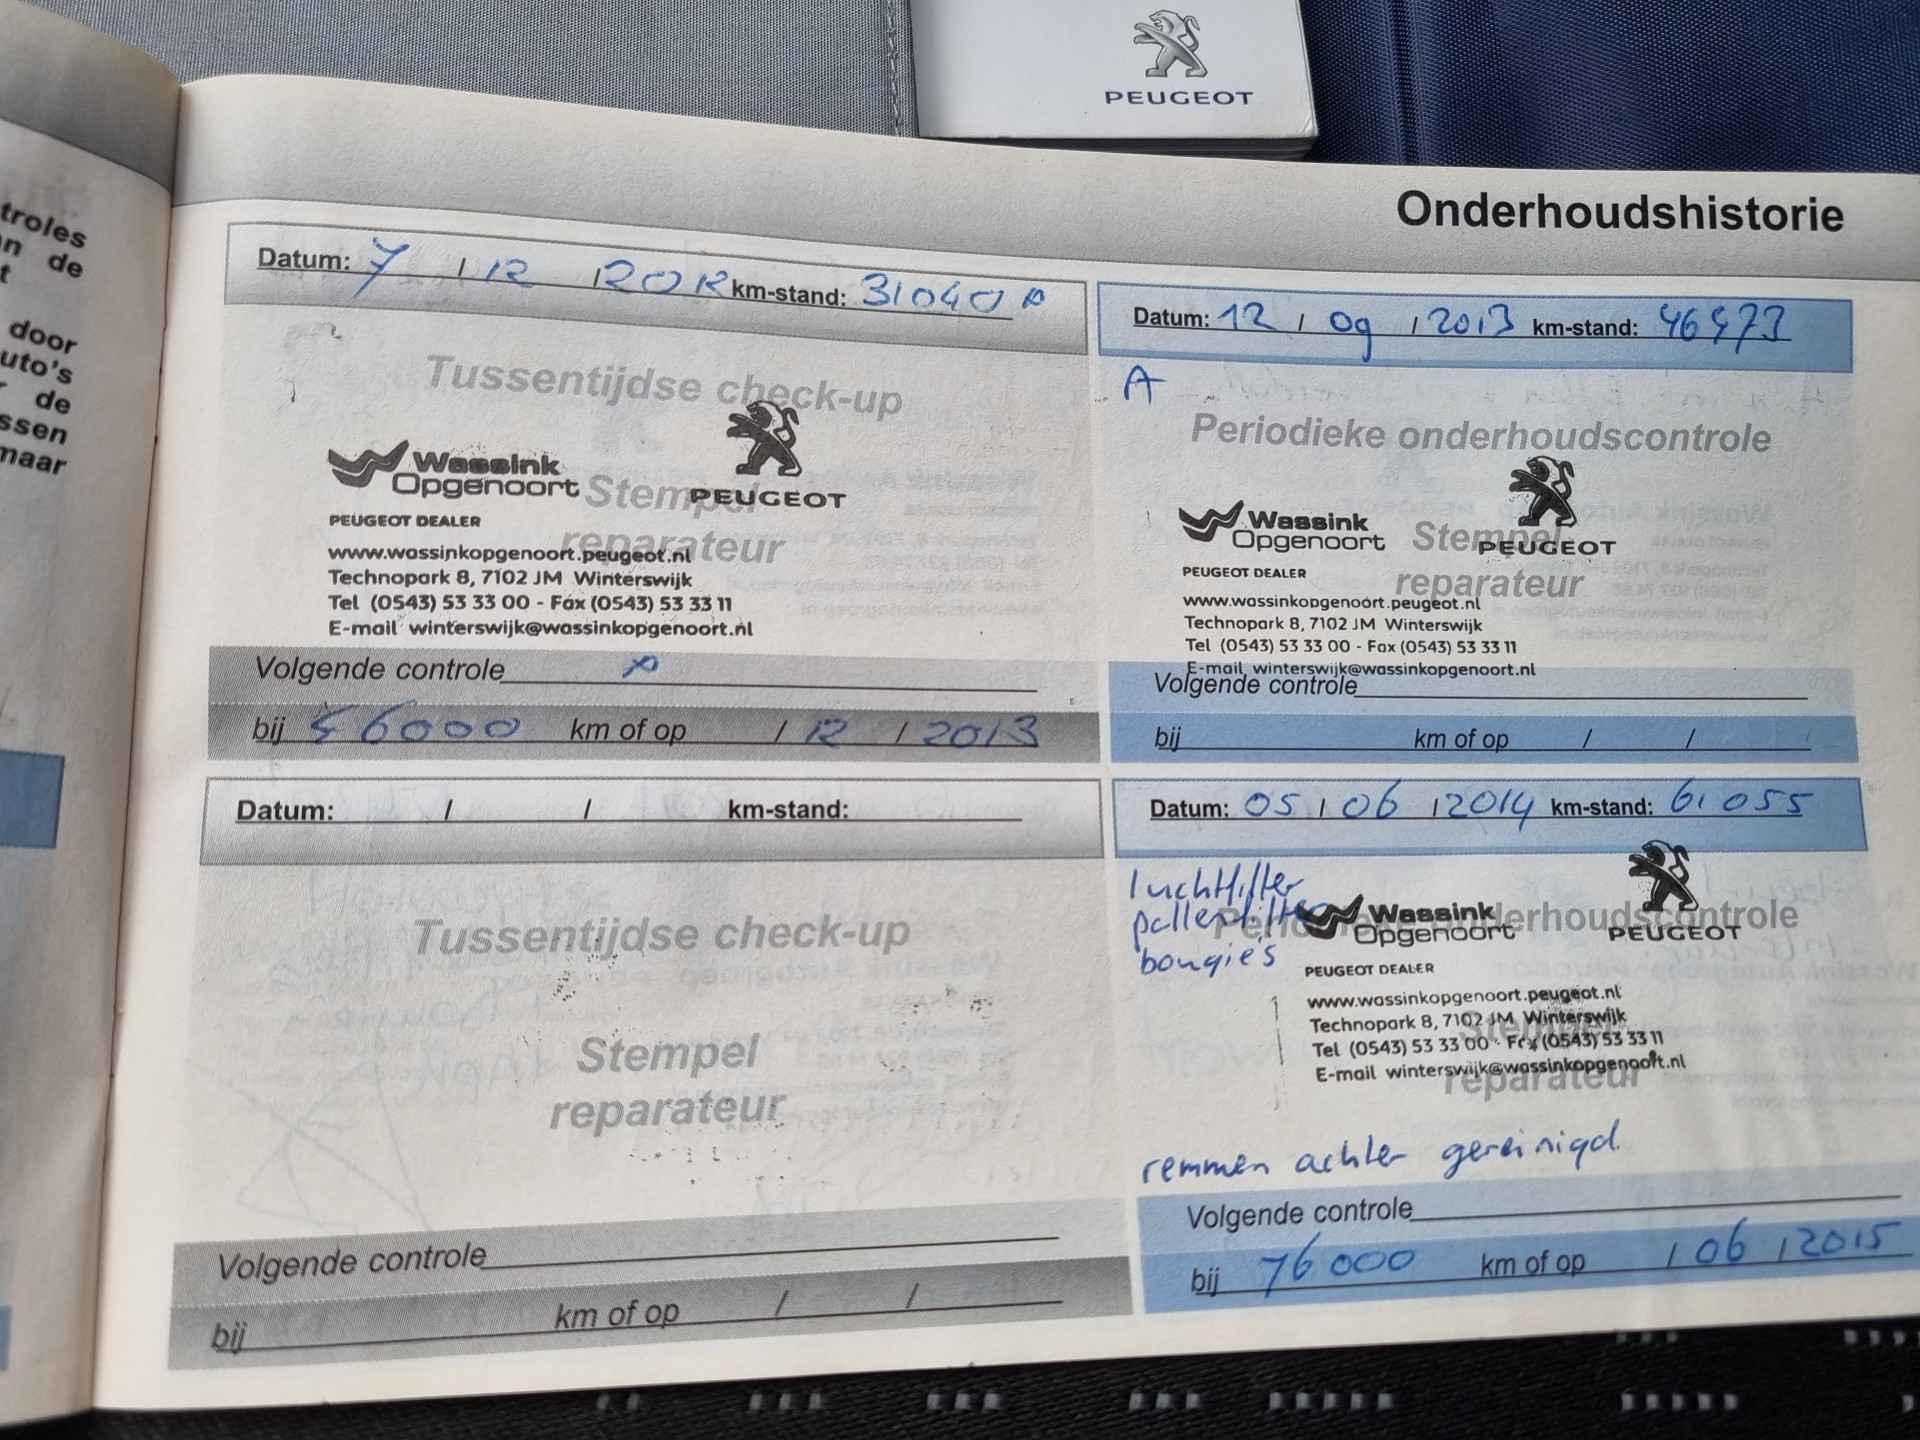 PEUGEOT
troles
an de
t
door
uto's
r de
ssen
maar
Onderhoudshistorie
Datum: 7 / 12 / 2012 km-stand: 31040
Tussentijdse check-up
Wassink
Opgenoort
PEUGEOT
Stempel
reparateur
PEUGEOT DEALER
www.wassinkopgenoort.peugeot.nl
Technopark 8, 7102 JM Winterswijk
Tel (0543) 53 33 00 - Fax (0543) 53 33 11
E-mail winterswijk@wassinkopgenoort.nl
Volgende controle
bij 46000 km of op / 12 / 2013
Datum: 12 / 09 / 2013 km-stand: 46473
A
Periodieke onderhoudscontrole
Wassink
Opgenoort
PEUGEOT
Stempel
reparateur
PEUGEOT DEALER
www.wassinkopgenoort.peugeot.nl
Technopark 8, 7102 JM Winterswijk
Tel (0543) 53 33 00 - Fax (0543) 53 33 11
E-mail winterswijk@wassinkopgenoort.nl
Volgende controle
bij km of op / /
Datum: / / km-stand:
Tussentijdse check-up
Stempel
reparateur
Volgende controle
bij km of op / /
Datum: 05 / 06 / 2014 km-stand: 61055
luchtfilter
pollenfilter
bougie's
Periodieke onderhoudscontrole
Wassink
Opgenoort
PEUGEOT
PEUGEOT DEALER
www.wassinkopgenoort.peugeot.nl
Technopark 8, 7102 JM Winterswijk
Tel (0543) 53 33 00 - Fax (0543) 53 33 11
E-mail winterswijk@wassinkopgenoort.nl
Stempel
reparateur
remmen achter gereinigd
Volgende controle
bij 76000 km of op / 06 / 2015